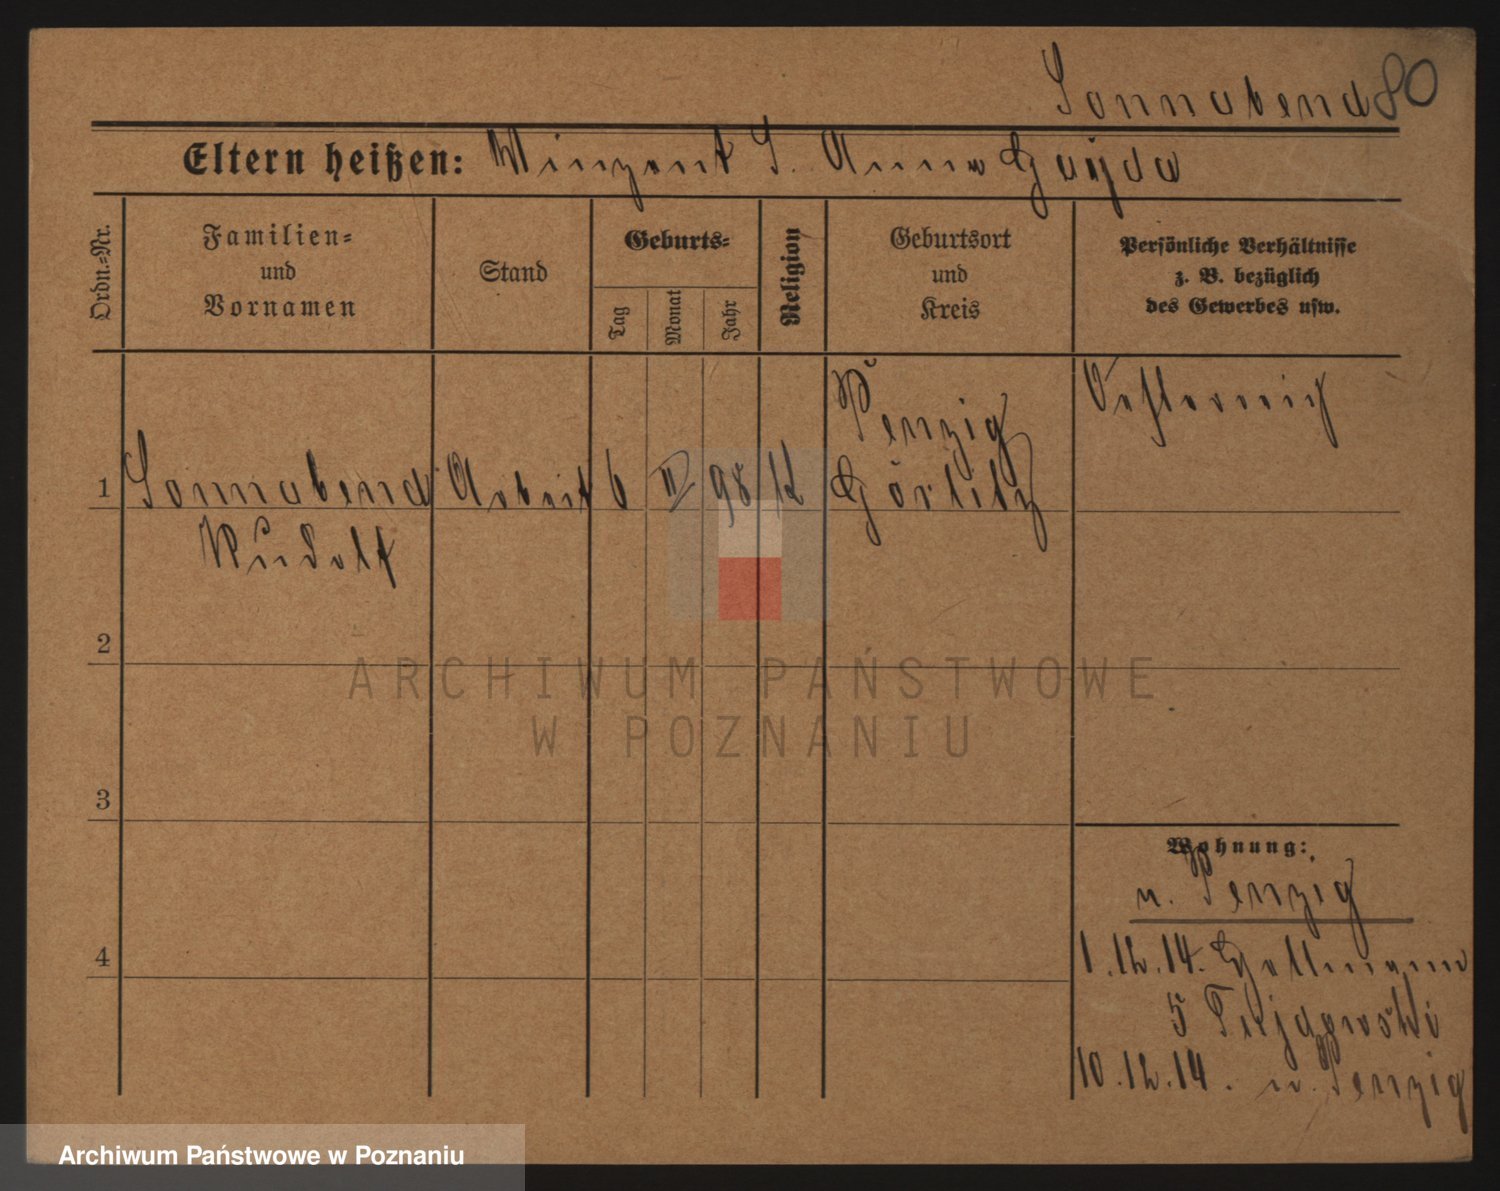 Sonnabend 80
Eltern heißen: Winzent S. Anna Gayda
Ordn.-Nr.
Familien-
und
Vornamen
Stand
Geburts-
Tag
Monat
Jahr
Religion
Geburtsort
und
Kreis
Persönliche Verhältnisse
z. B. bezüglich
des Gewerbes usw.
Penzig
Oesterreich
1 Sonnabend Arbeit 6 II 98 K Görlitz
Rudolf
2
ARCHIWUM PAŃSTWOWE
W POZNANIU
3
Wohnung:
n. Penzig
4
1.12.14.
5
10.12.14. n. Penzig
Archiwum Państwowe w Poznaniu